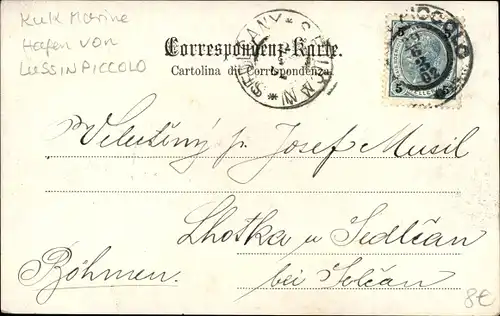 KuK Marine
Hafen von
LUSSINPICCOLO
Correspondenz-Karte.
Cartolina di Corrispondenza.
5 5
Velectěný p. Josef Musil
Lhotka u Sedlčan
Böhmen.
bei Selčan
8€